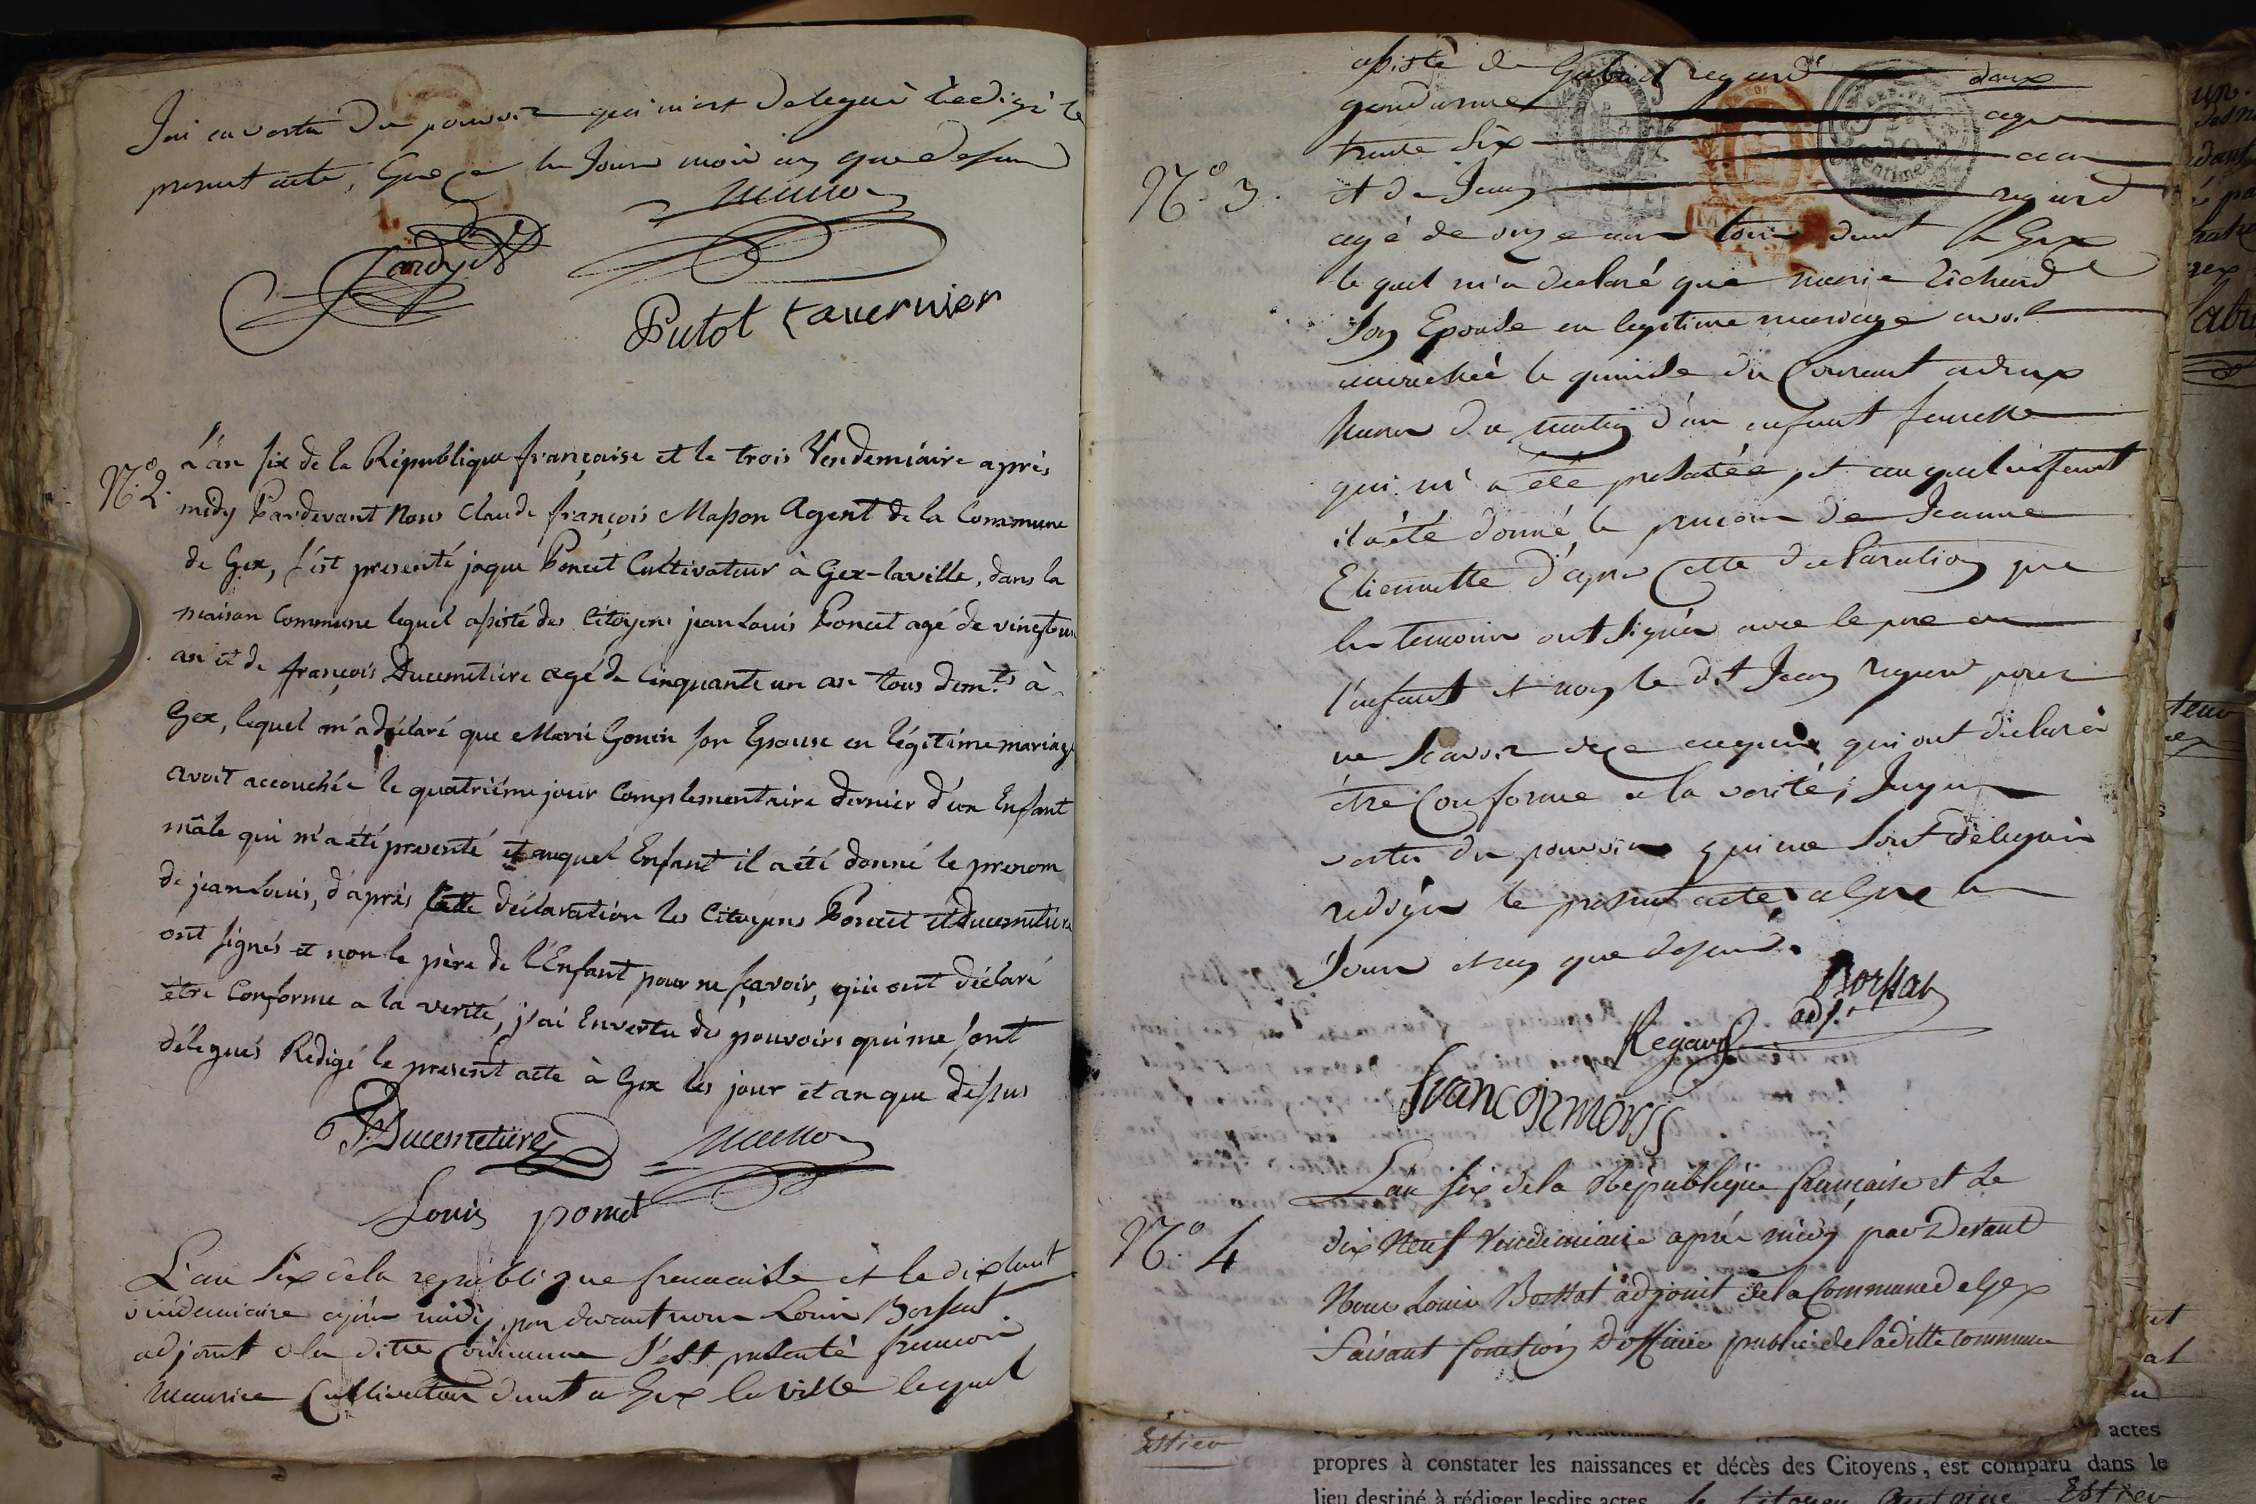 J'ai en vertu du pouvoir qui m'est delegué Redigé le
present acte, Gex ce les Jour mois an que dessus
Masson
Tardy
Putot tavernier
N.º 2.
L'an six de la République françoise et le trois Vendemiaire après
midy Pardevant Nous Claude françois Masson Agent de la Commune
de Gex, s'est presenté jaque Poncet Cultivateur à Gex-laville, dans la
maison Commune lequel assisté des Citoyens jean Louis Poncet agé de vingt un
an et de françois Ducimetière agé de Cinquante un an tous dem.ts à
Gex, lequel m'a déclaré que Marie Gonin son Epouse en légitime mariage
avoit accouchée le quatriéme jour Complementaire dernier d'un Enfant
mâle qui m'a été presenté et auquel Enfant il a été donné le prenom
de jean Louis, d'après cette déclaration les Citoyens Poncet et Ducimetière
ont signés et non le père de l'Enfant pour ne sçavoir, qui ont déclaré
être Conforme a la verité, j'ai En vertu des pouvoirs qui me sont
délegués Redigé le present acte à Gex les jour et an que dessus
Ducimetière Masson
Louis poncet
L'an Six de la republique francaise et le dix huit
vindemiaire apres midy par devant nous Louis Borssat
adjoint de la ditte Commune S'est presenté francois
Maurice Cultivateur demt a Gex la ville lequel
assisté de Gabriel regard
gendarme agé
trente six ans
N.º 3.
et de Jean regard
agé de onze ans tous demt a Gex
le quel m'a declaré que marie Richard
Son Epouse en legitime mariage avoit
accouchée le quinse du Courant a deux
heures du matin d'un enfant femelle
qui m'a été presentée, et auquel enfant
il a été donné le prenom de Jeanne
Etiennette d'apres Cette declaration
les temoins ont Signés avec le pere de
l'enfant et non le dit Jean regard pour
ne Scavoir de ce enquis qui ont declaré
étre Conforme a la verité, J'ay en
vertu du pouvoir qui me Sont delegués
redigés le present acte, a Gex les
Jour et an que dessus.
Borssat
adj.
Regard
francois moris
N.º 4
L'an six de la République française et le
dix Neuf Vendemiaire aprés midy par Devant
Nous Louis Borssat adjoint de la Commune de Gex
faisant fonction D'officier public de la ditte Commune
actes
propres à constater les naissances et décès des Citoyens, est comparu dans le
lieu destiné à rédiger lesdits actes le Citoyen Antoine Estieu